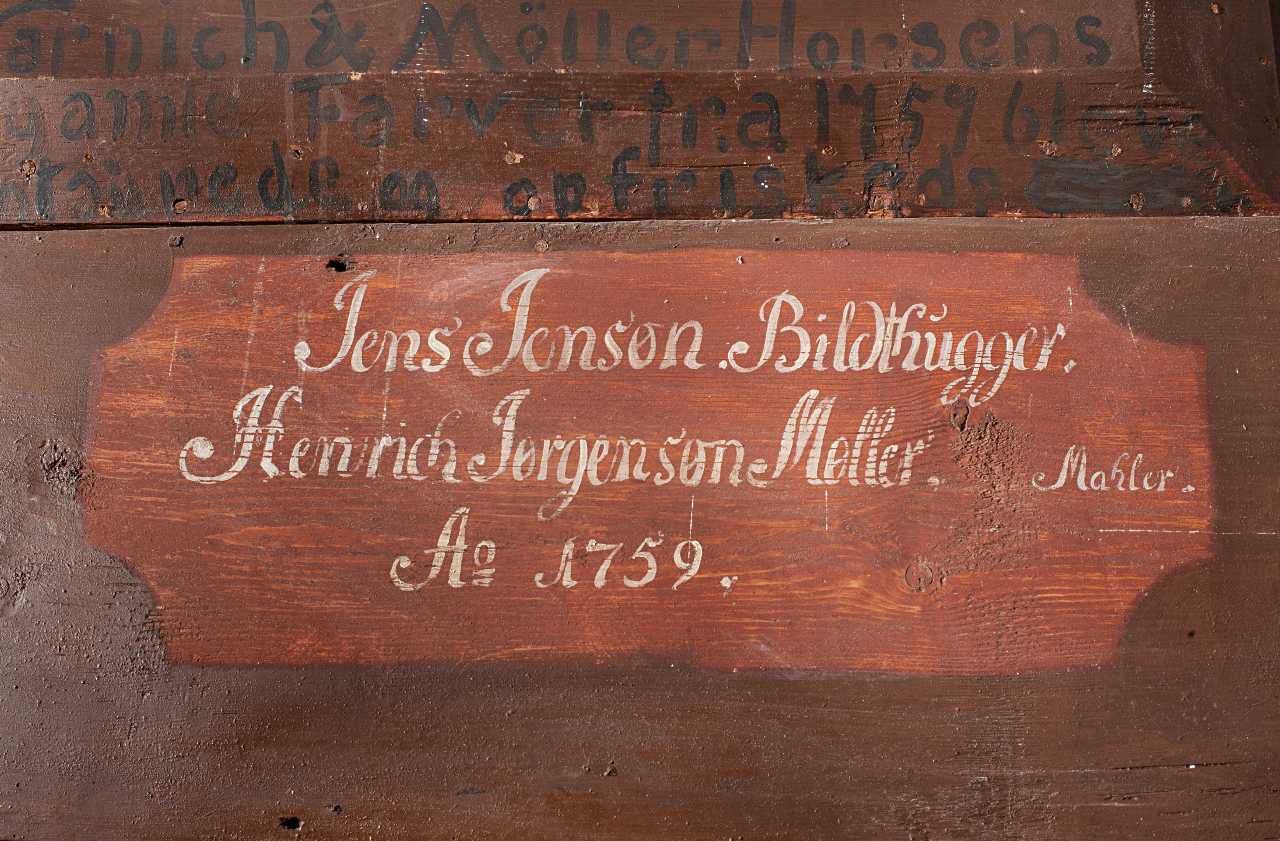 & Möller Horsens
gamle Farver fra 1759 blev
op friskede
Jens Jenson . Bildthugger.
Henrich Jørgensøn Møller. Mahler.
Ao 1759.